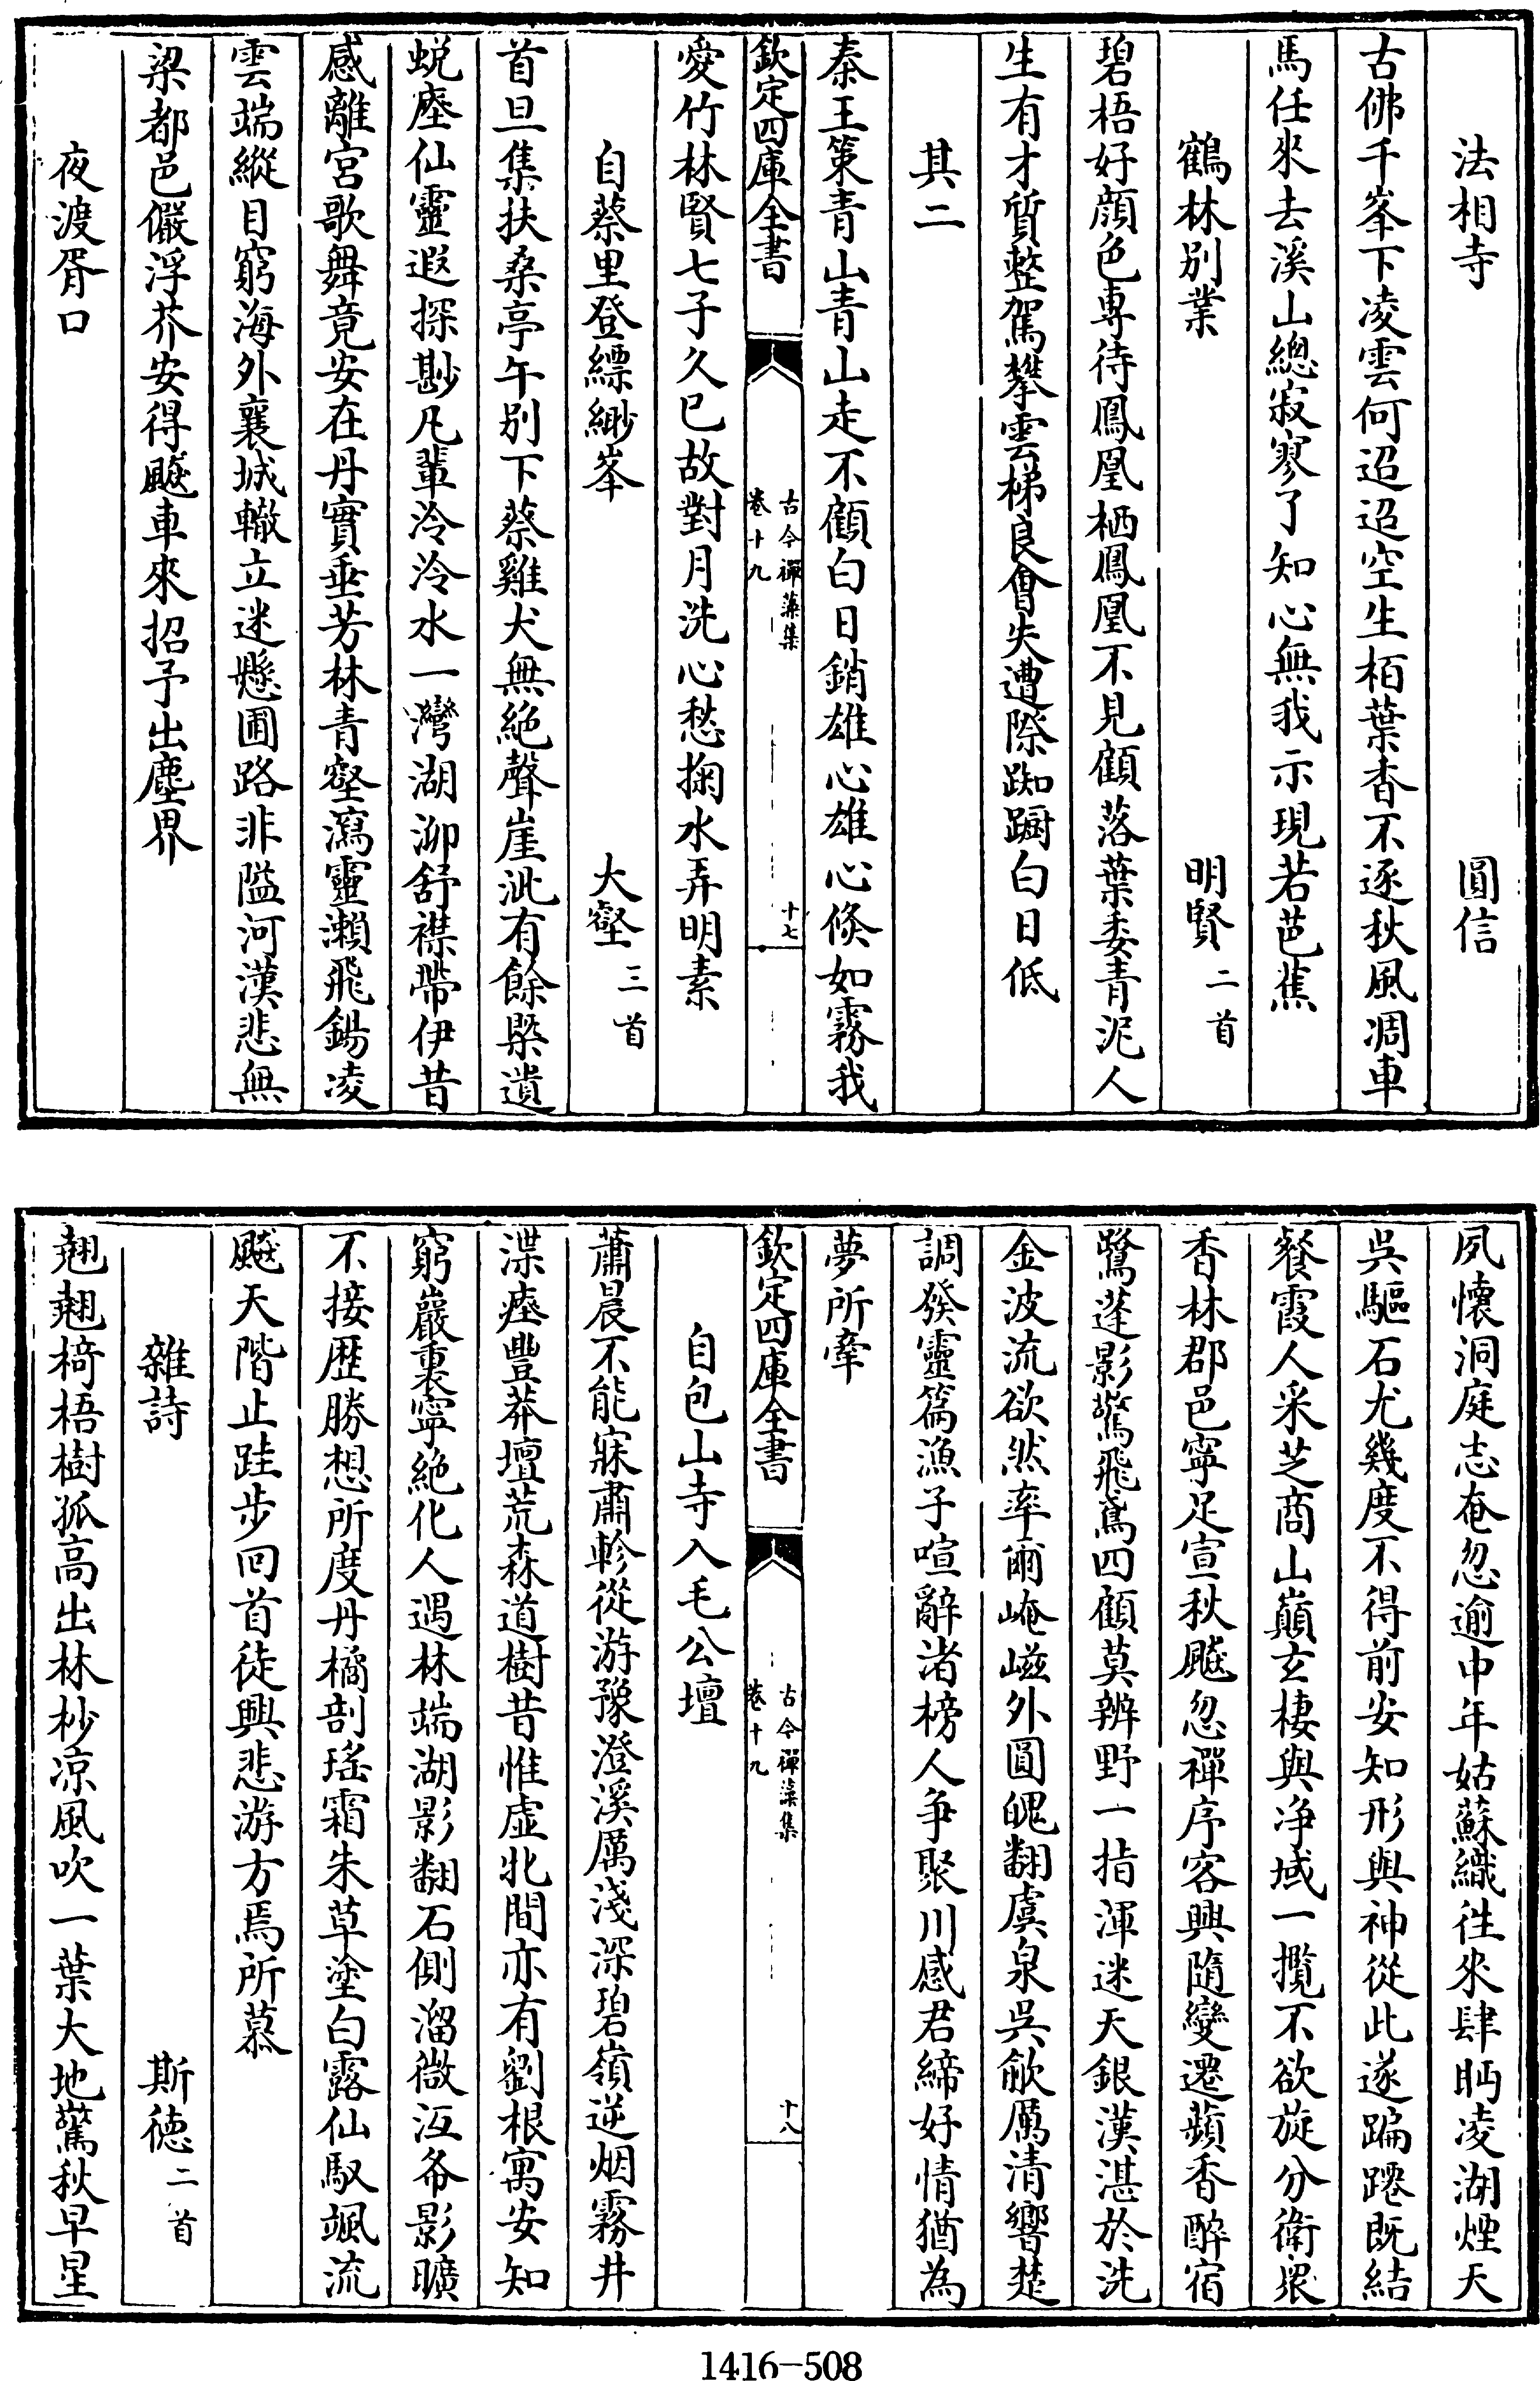 法相寺　圓信
古佛千峯下凌雲何迢迢空生栢葉杳不逐秋風凋車
馬任來去溪山總寂寥了知心無我示現若芭蕉
鶴林别業　明賢二首
碧梧好顔色専待鳳凰栖鳳凰不見顧落葉委青泥人
生有才質整駕攀雲梯良會失遭際踟蹰白日低
其二
秦王策青山青山走不顧白日銷雄心雄心倐如霧我
欽定四庫全書
古今禪藻集
卷十九
十七
愛竹林賢七子久已故對月洗心愁掬水弄明素
自蔡里登縹緲峯　大壑三首
首旦集扶桑亭午别下蔡雞犬無絶聲崖泚有餘槩遺
蜕塵仙靈遐探尠凡輩泠泠水一灣湖泖舒襟帶伊昔
感離宮歌舞竟安在丹實垂芳林青壑瀉靈瀨飛錫凌
雲端縱目窮海外襄城轍立迷懸圃路非隘河漢悲無
梁都邑儼浮芥安得飈車來招予出塵界
夜渡胥口
夙懷洞庭志奄忽逾中年姑蘇織徃來肆眄凌湖煙天
吳驅石尤幾度不得前安知形與神從此遂蹁躚既結
餐霞人采芝商山巔玄棲與净域一攬不欲旋分衛裠
香林郡邑寧足宣秋飈忽禪序客興隨變遷蘋香醉宿
鷺蓬影驚飛鳶四顧莫辨野一指渾迷天銀漢湛於洗
金波流欲然率爾崦嵫外圓魄翻虞泉吳歈厲清響楚
調發靈篇漁子喧辭渚榜人争聚川感君締好情猶為
夢所牽
欽定四庫全書
古今禪藻集
卷十九
十八
自包山寺入毛公壇
蕭晨不能寐肅軫從游豫澄溪厲淺深碧嶺逆烟霧井
渫瘞豐莽壇荒森道樹昔惟虚牝間亦有劉根寓安知
窮巖裏寧絶化人遇林端湖影翻石側溜微沍夤影曠
不接歴勝想所度丹橘剖瑤霜朱草塗白露仙馭颯流
飈天階止跬步回首徒興悲游方焉所慕
雜詩　斯徳二首
翹翹椅梧樹孤高出林杪凉風吹一葉大地驚秋早星
1416-508